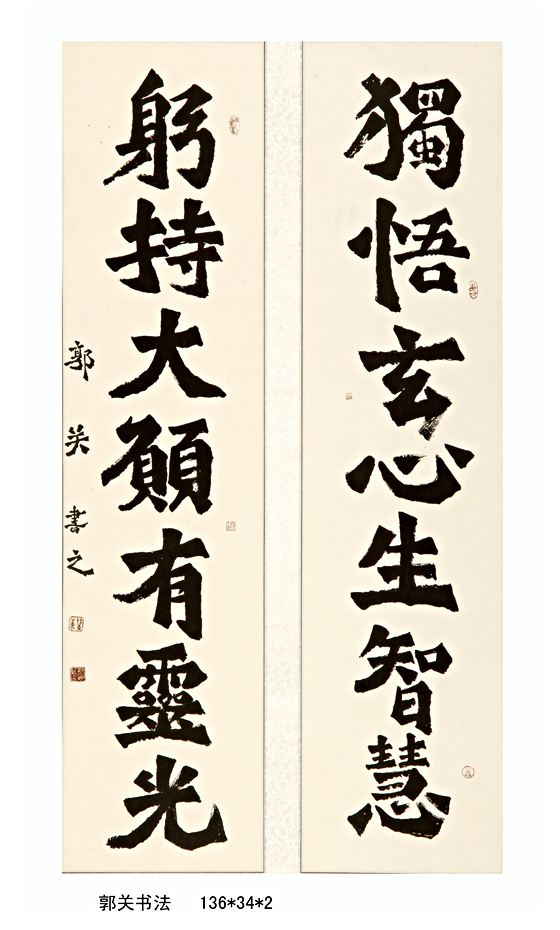 獨悟玄心生智慧
躬持大願有靈光
郭关書之
郭关书法 136*34*2